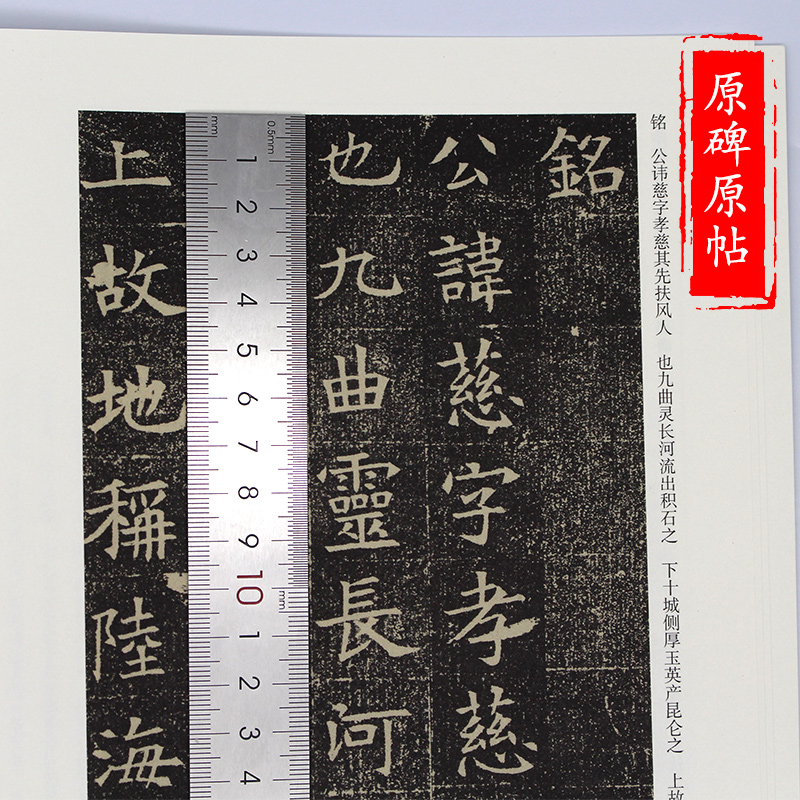 原碑原帖
铭 公讳慈字孝慈其先扶风人 也九曲灵长河流出积石之 下十城侧厚玉英产昆仑之 上故
銘
公諱慈字孝慈
也九曲靈長河
上故地稱陸海
mm 0.5mm
1
2
3
4
5
6
7
8
9
10
mm
1
2
3
4